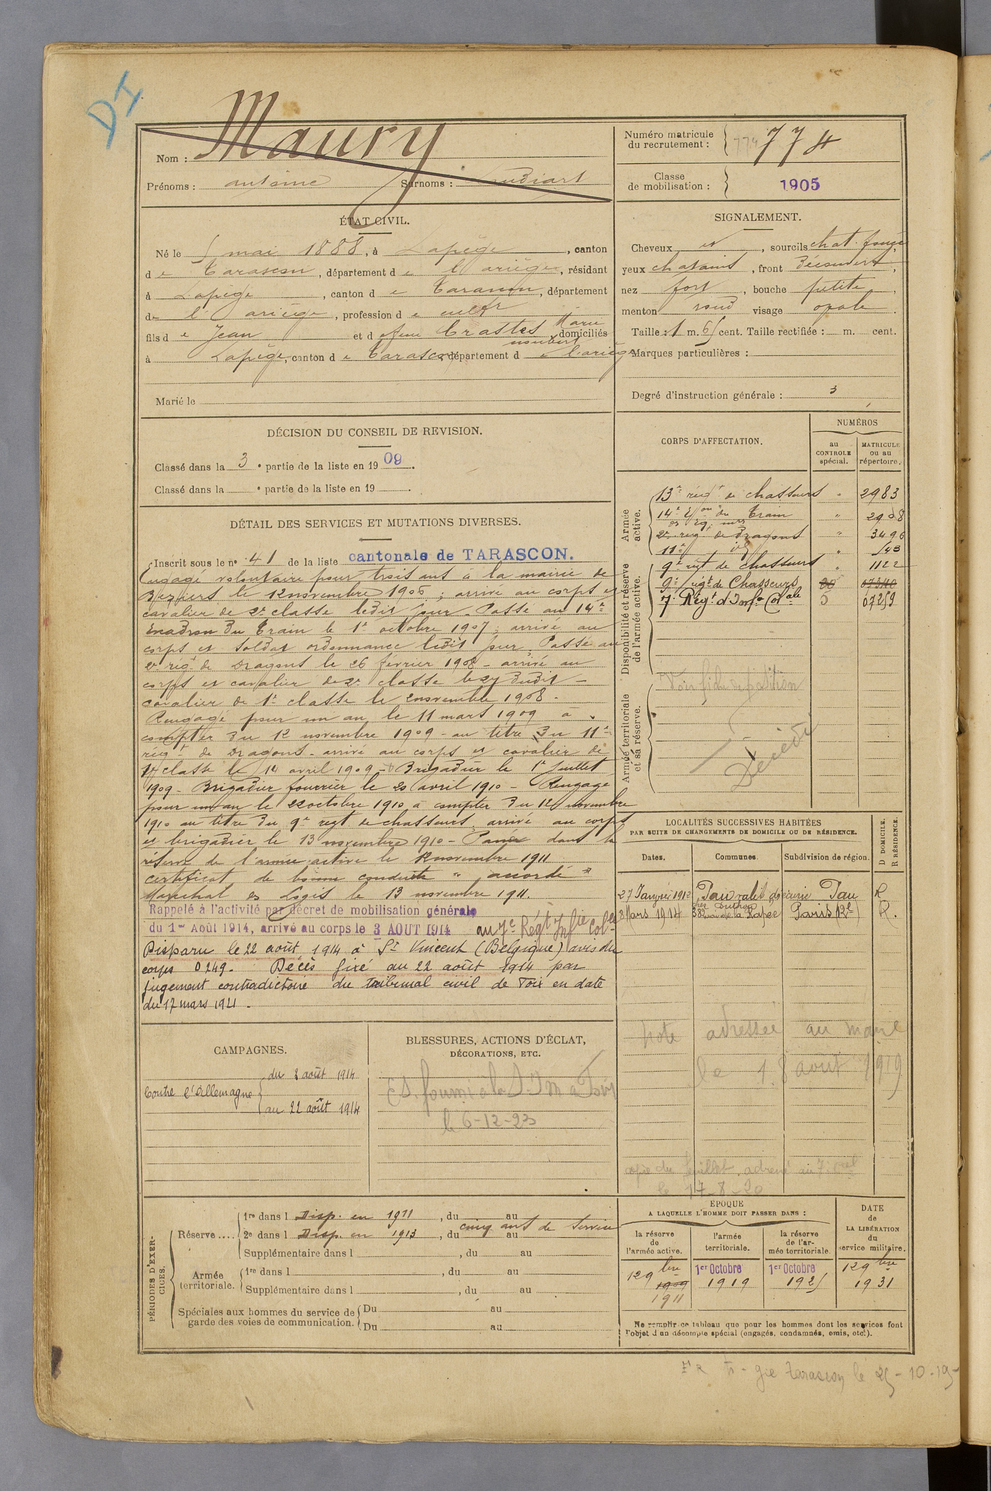 DI
Nom : Maury
Prénoms : antoine Surnoms :
Numéro matricule du recrutement : 774
Classe de mobilisation : 1905
ÉTAT CIVIL.
Né le 5 mai 1888, à Lapège, canton
de Tarascon, département de l'ariège, résidant
à Lapège, canton de Tarascon, département
de l'ariège, profession de
fils de Jean et de feue Crastes Marie domiciliés
à Lapège, canton de Tarascon, département de l'ariège
Marié le
SIGNALEMENT.
Cheveux , sourcils chat. foncé
yeux chatains, front Découvert,
nez fort, bouche petite
menton rond visage ovale
Taille : 1 m. cent. Taille rectifiée : m. cent.
Marques particulières :
Degré d'instruction générale : 3
DÉCISION DU CONSEIL DE REVISION.
Classé dans la 3e partie de la liste en 1909.
Classé dans la e partie de la liste en 19 .
DÉTAIL DES SERVICES ET MUTATIONS DIVERSES.
Inscrit sous le no 41 de la liste cantonale de TARASCON.
Engagé volontaire pour trois ans à la mairie de
le 12 novembre 1906, arrivé au corps et
cavalier de 2e classe ledit jour. Passé au 14e
Escadron du Train le 1er octobre 1907, arrivé au
corps et soldat ordonnance ledit jour. Passé au
2e régt de Dragons le 26 février 1908 - arrivé au
corps et cavalier de 2e classe le 27 dudit -
cavalier de 1e classe le novembre 1908.
Rengagé pour un an le 11 mars 1909 à
compter du 12 novembre 1909 - au titre du 11e
régt de Dragons - arrivé au corps et cavalier de
classe le 14 avril 1909 - Brigadier le 1er juillet
1909 - Brigadier fourrier le 20 avril 1910 - Rengagé
pour un an le 22 octobre 1910, à compter du 12 novembre
1910 au titre du 9e régt de chasseurs, arrivé au corps
et brigadier le 13 novembre 1910 - Passé dans la
réserve de l'armée active le 12 novembre 1911
certificat de bonne conduite " accordé "
Maréchal des Logis le 13 novembre 1911.
Rappelé à l'activité par décret de mobilisation générale
du 1er Août 1914, arrivé au corps le 3 AOUT 1914 au 7e Régt Infie Cole
Disparu le 22 août 1914 à St Vincent (Belgique) avis du
corps 0249. Décès fixé au 22 août 1914 par
jugement contradictoire du tribunal civil de Foix en date
du 17 mars 1921.
CORPS D'AFFECTATION.
NUMÉROS
au CONTROLE spécial.
MATRICULE ou au répertoire.
Armée active.
13e régt de chasseurs " 2983
14e Eon du Train " 2908
2e régt de Dragons " 3496
11e
9e régt de chasseurs " 1122
Disponibilité et réserve de l'armée active.
9e régt de Chasseurs
7e Régt d'Infie Colale 5
Armée territoriale et sa réserve.
Décédé
LOCALITÉS SUCCESSIVES HABITÉES
PAR SUITE DE CHANGEMENTS DE DOMICILE OU DE RÉSIDENCE.
Dates. Communes. Subdivision de région. D DOMICILE. R RÉSIDENCE.
27 Janvier 1912 Pau Pau R
Mars 1914 Paris R.
note adressée au maire
le 18 août 1919
copie du feuillet adressé au
le 17-8-20
CAMPAGNES.
Contre l'Allemagne
du 3 août 1914
au 22 août 1914
BLESSURES, ACTIONS D'ÉCLAT,
DÉCORATIONS, ETC.
le 6-12-23
PÉRIODES D'EXERCICES.
Réserve....
1re dans l Disp. en 1911, du au
2e dans l Disp. en 1913, du au cinq ans de service
Supplémentaire dans l , du au
Armée territoriale.
1re dans l , du au
Supplémentaire dans l , du au
Spéciales aux hommes du service de garde des voies de communication.
Du au
Du au
ÉPOQUE
A LAQUELLE L'HOMME DOIT PASSER DANS :
la réserve de l'armée active.
l'armée territoriale.
la réserve de l'armée territoriale.
DATE de LA LIBÉRATION du service militaire.
12 9bre 1909 1911
1er Octobre 1919
1er Octobre 1925
12 9bre 1931
Ne remplir ce tableau que pour les hommes dont les services font
l'objet d'un décompte spécial (engagés, condamnés, omis, etc.).
Tarascon le 25-10-19